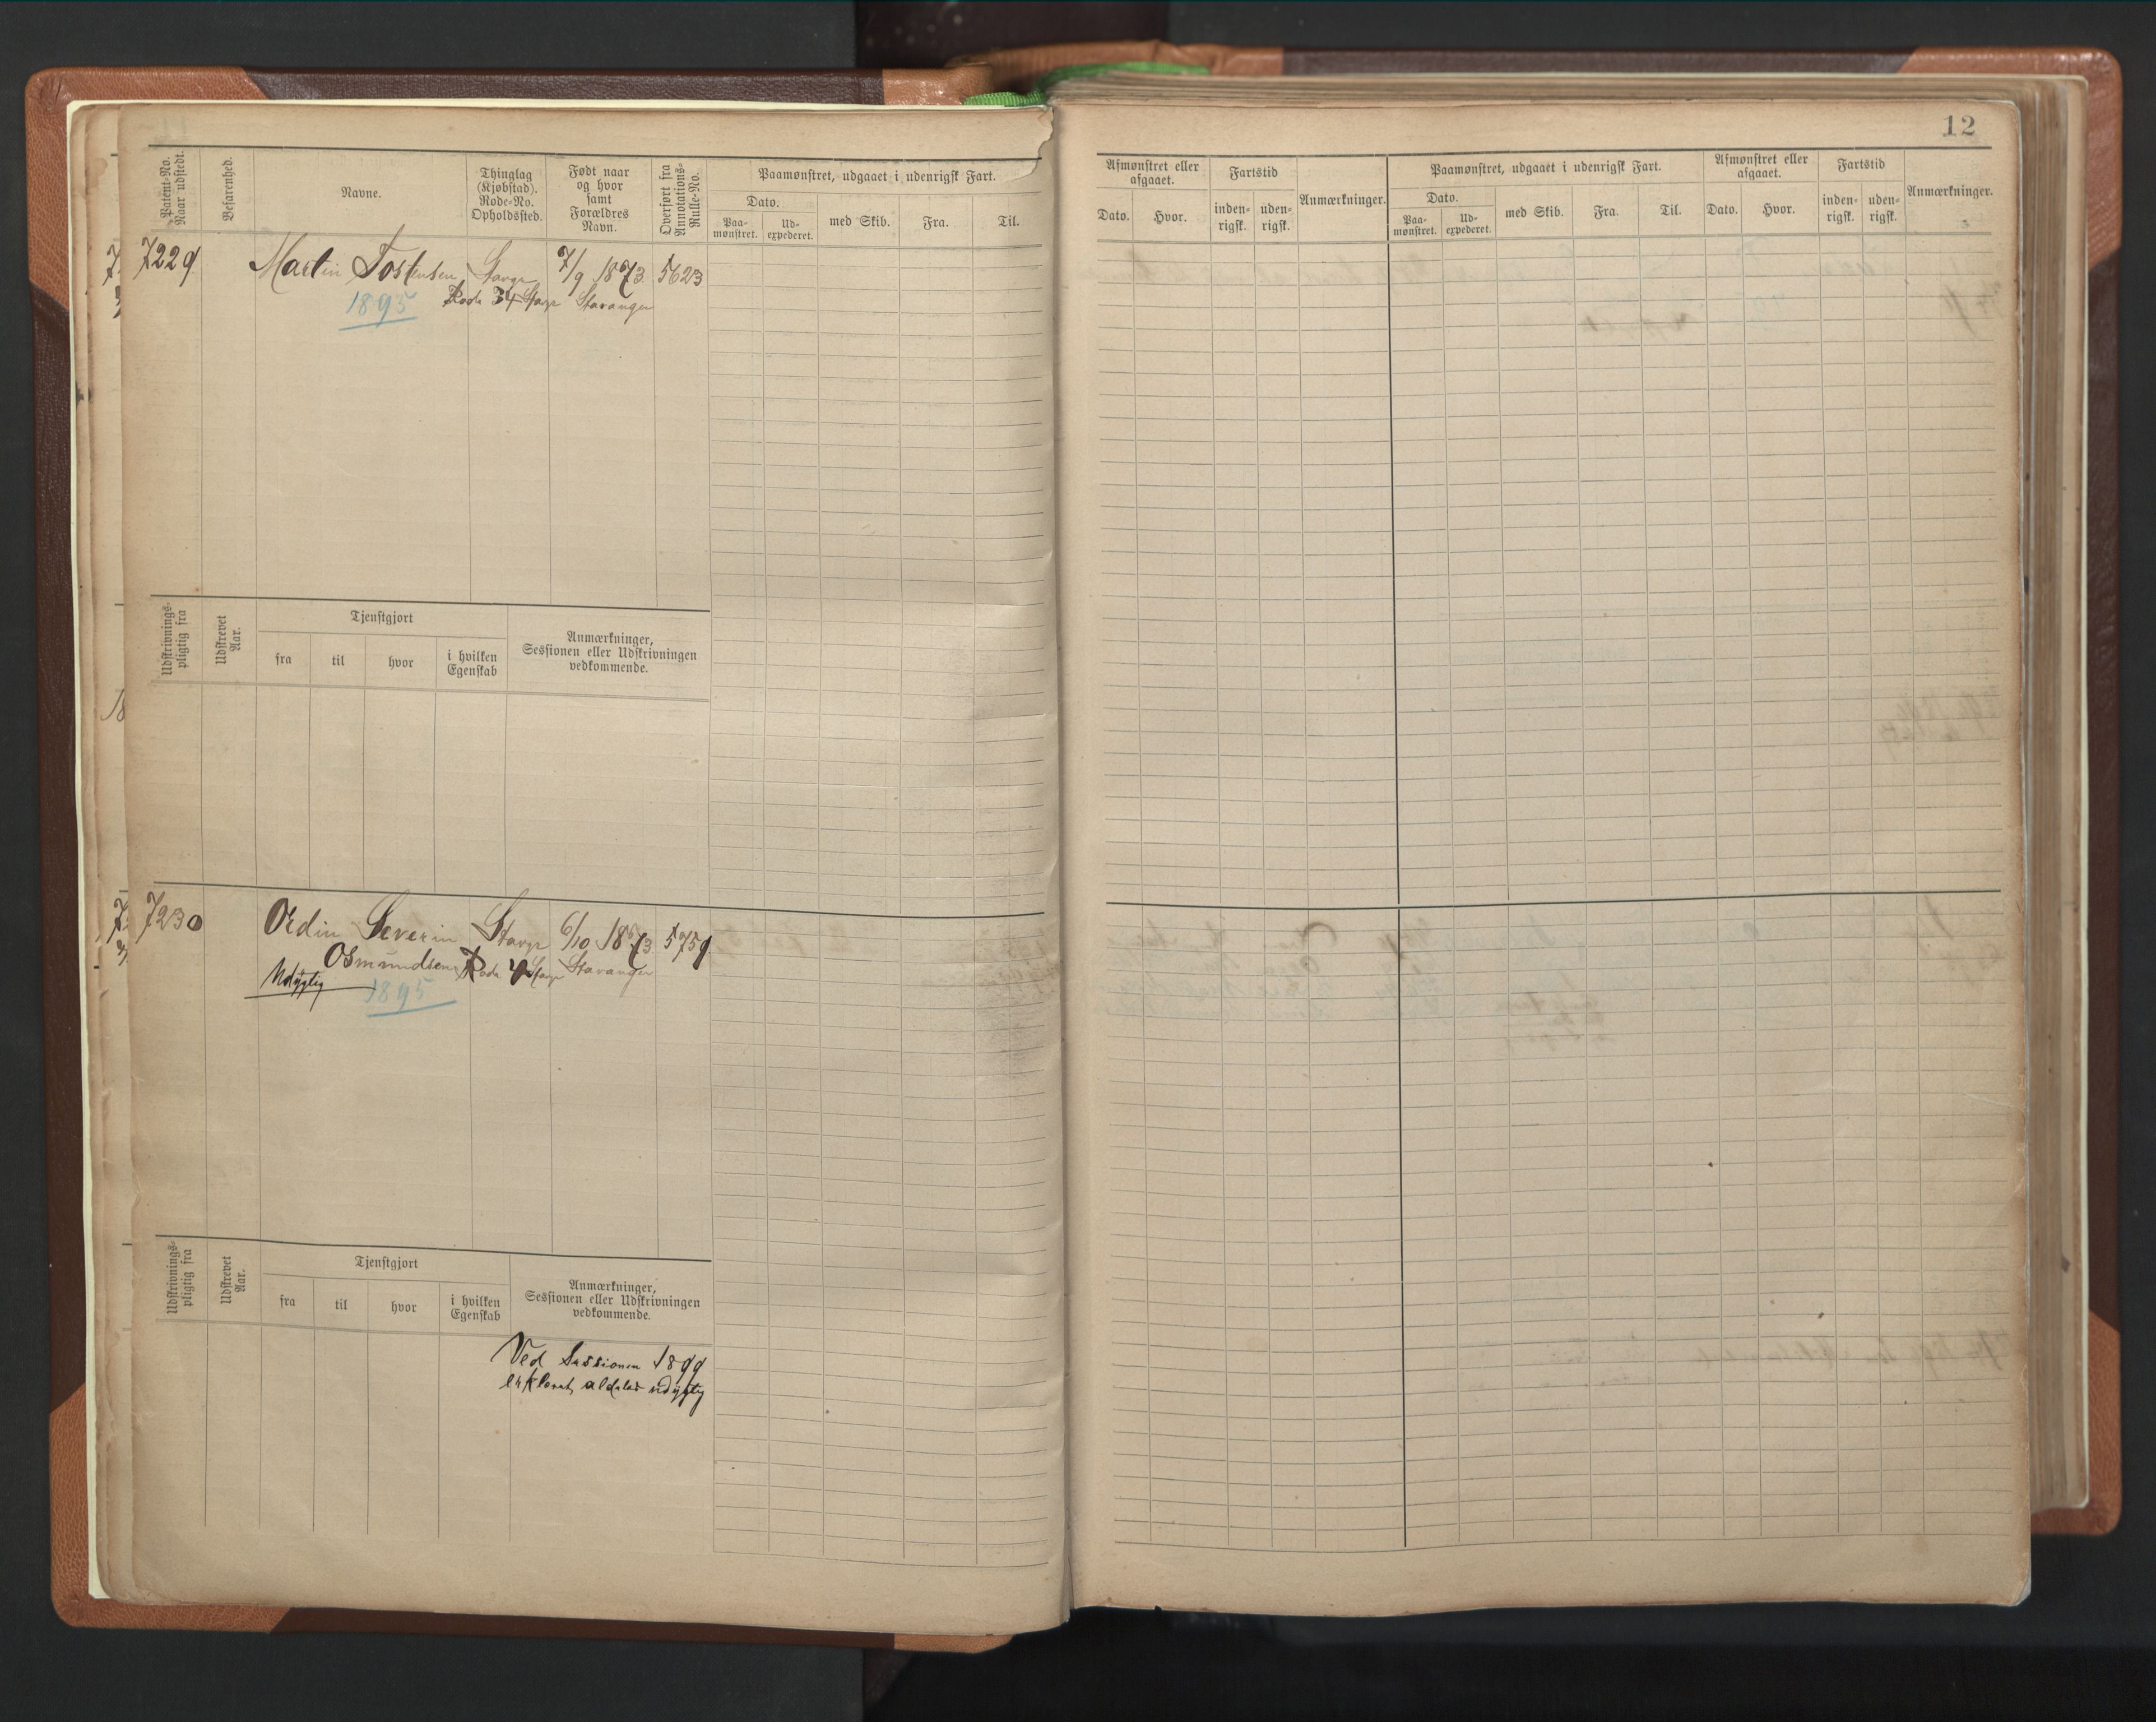 12
Patent-No.
Naar udstedt.
Befarenhed.
Navne.
Thinglag
(Kjøbstad).
Rode-No.
Opholdssted.
Født naar
og hvor
samt
Forældres
Navn.
Overført fra
Annotations-
Rulle-No.
Paamønstret, udgaaet i udenrigsk Fart.
Dato.
Paa-
mønstret.
Ud-
expederet.
med Skib.
Fra.
Til.
Afmønstret eller
afgaaet.
Dato.
Hvor.
Fartstid
inden-
rigsk.
uden-
rigsk.
Anmærkninger.
Paamønstret, udgaaet i udenrigsk Fart.
Dato.
Paa-
mønstret.
Ud-
expederet.
med Skib.
Fra.
Til.
Afmønstret eller
afgaaet.
Dato.
Hvor.
Fartstid
inden-
rigsk.
uden-
rigsk.
Anmærkninger.
7229 Martin Tostensen Stavgr 7/9 1873 5623
1895 Rode 34 Stavgr Stavanger
Udskrivnings-
pligtig fra
Udskrevet
Aar.
Tjenstgjort
fra
til
hvor
i hvilken
Egenskab
Anmærkninger,
Sessionen eller Udskrivningen
vedkommende.
7230 Ordin Severin Stavgr 6/10 1873 5759
Osmundsen Rode 4 Stavgr Stavanger
Udygtig
1895
Udskrivnings-
pligtig fra
Udskrevet
Aar.
Tjenstgjort
fra
til
hvor
i hvilken
Egenskab
Anmærkninger,
Sessionen eller Udskrivningen
vedkommende.
Ved Sessionen 1899
erklæret aldeles udygtig